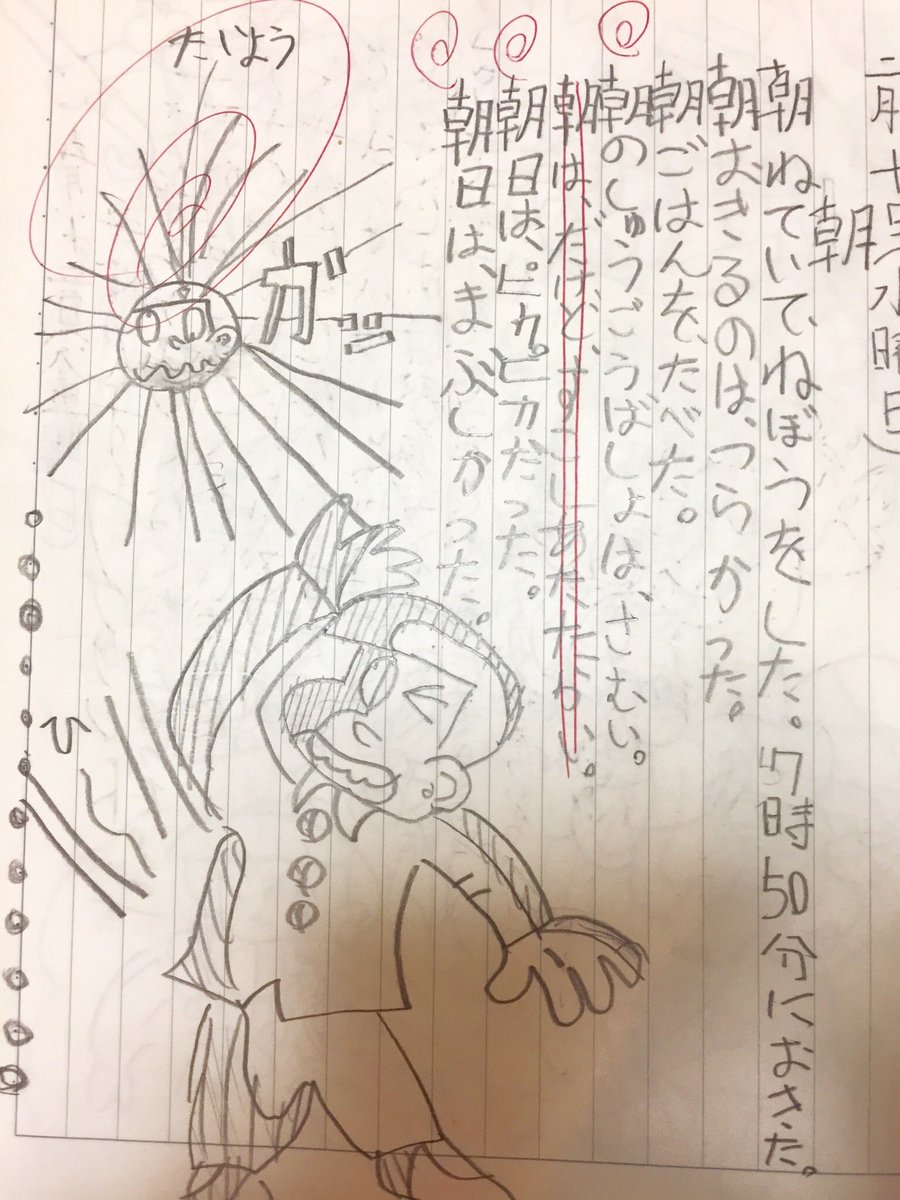 朝
朝ねていて、ねぼうをした。7時50分におきた。
朝おきるのは、つらかった。
朝ごはんを、たべた。
朝のしゅうごうばしょは、さむい。
朝は、だけど、すこしあたたかい。
朝日は、ピカピカだった。
朝日は、まぶしかった。
たいよう